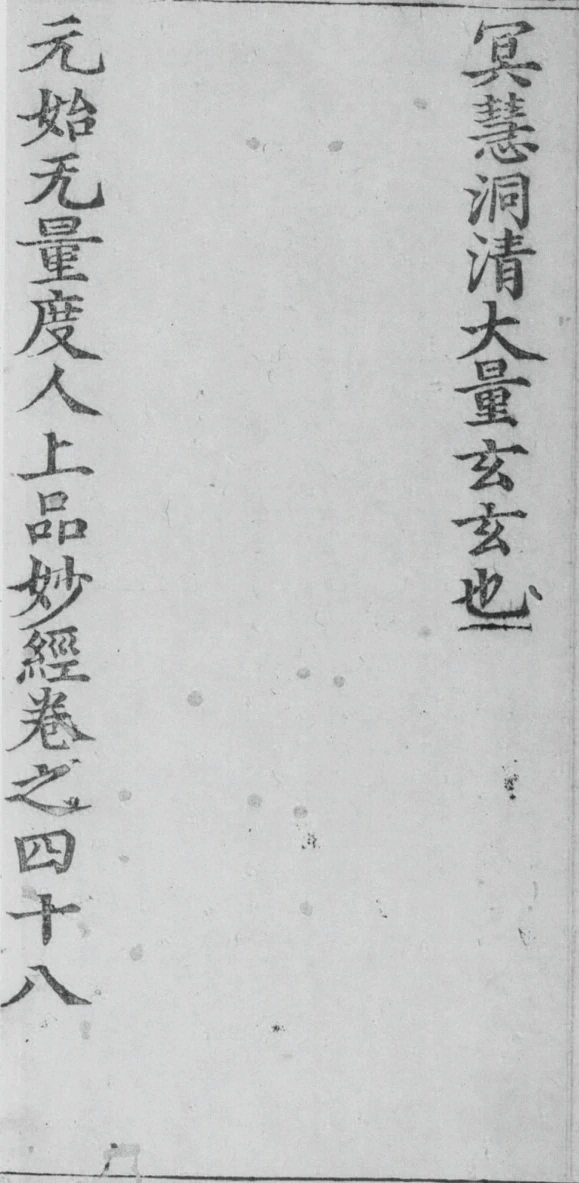 冥慧洞清大量玄玄也
元始无量度人上品妙經卷之四十八